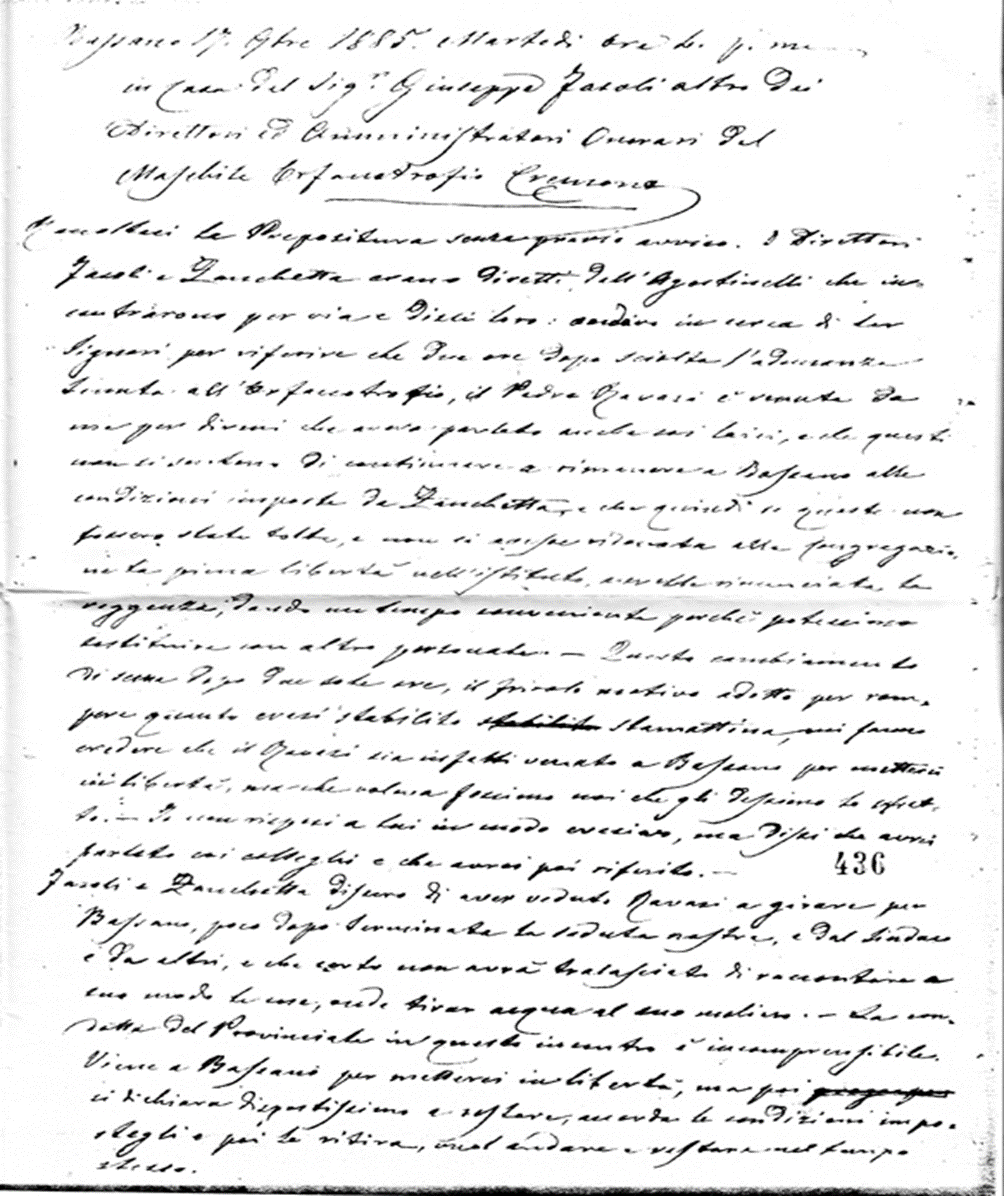 Bassano 17. 9bre 1885. Martedì ore 6. p. m.
in Casa del Sig.r Giuseppe Jasoli altro dei
Direttori ed Amministratori Onorari del
Maschile Orfanotrofio Cremona
Raccoltasi la Prepositura senza previo avviso. I Direttori
Jasoli e Zanchetta erano diretti dall'Agostinelli che in-
contrarono per via e disse loro: andavo in cerca di lor
Signori per riferire che due ore dopo sciolta l'adunanza
tenuta all'Orfanotrofio, il Padre Ravasi è venuto da
me per dirmi che aveva parlato anche coi laici, e che questi
non si sentono di continuare a rimanere a Bassano alle
condizioni imposte da Zanchetta, e che quindi se queste non
fossero state tolte, e non si avesse ridonata alla Congregazio-
ne la piena libertà nell'istituto, avrebbe rinunciata la
reggenza, dando un tempo conveniente perchè potessimo
sostituire con altro personale. — Questo cambiamento
di scena dopo due sole ore, il frivolo motivo addotto per rom-
pere quanto erasi stabilito stabilito stamattina, mi fanno
credere che il Ravasi sia infatti venuto a Bassano per metterci
in libertà, ma che voleva fossimo noi che gli dessimo lo sfrat-
to. — Io non risposi a lui in modo evasivo, ma dissi che avrei
parlato coi colleghi e che avrei poi riferito. —
436
Jasoli e Zanchetta dissero di aver veduto Ravasi a girare per
Bassano, poco dopo terminata la seduta nostra, e dal Sindaco
e da altri, e che certo non avrà tralasciato di raccontare a
suo modo le cose, onde tirar acqua al suo molino. — La con-
dotta del Provinciale in questo incontro è incomprensibile.
Viene a Bassano per metterci in libertà, ma poi
si dichiara dispostissimo a restare, accorda le condizioni impo-
stegli e poi le ritira, vuol andare e restare nel tempo
stesso.